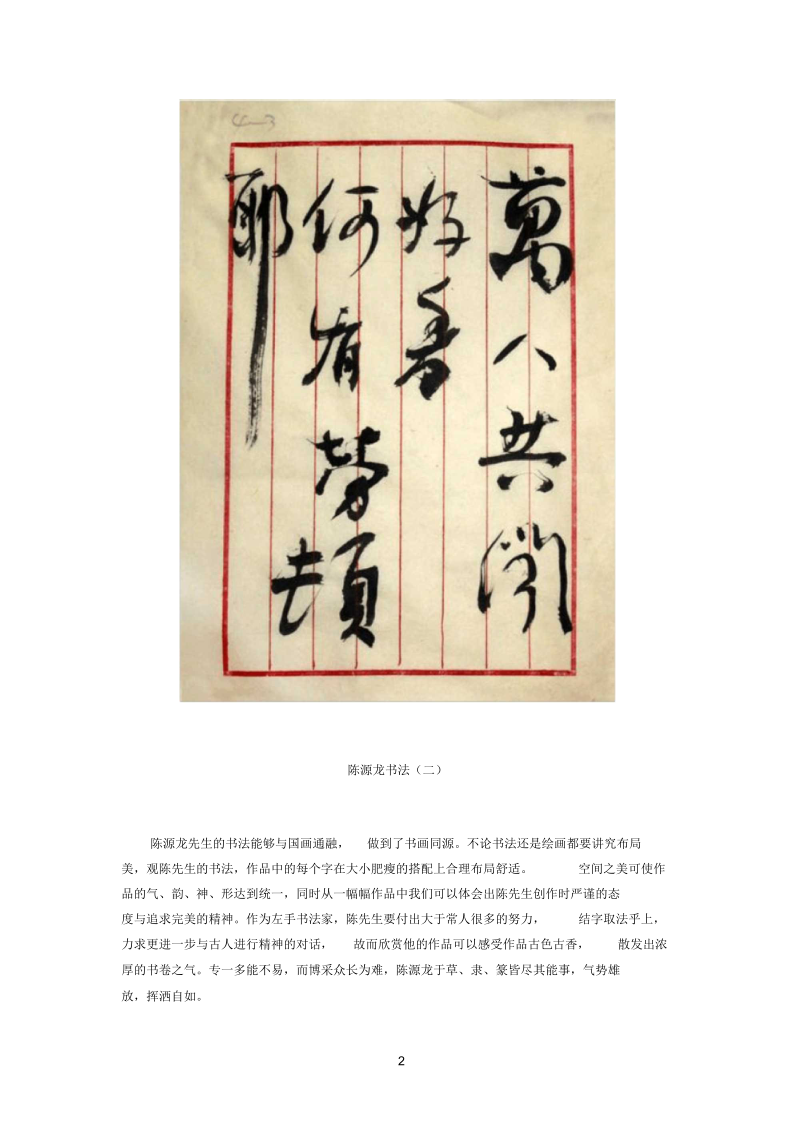 萬人共聞
好香
何有勞頓
耶
陈源龙书法（二）
陈源龙先生的书法能够与国画通融， 做到了书画同源。不论书法还是绘画都要讲究布局
美，观陈先生的书法，作品中的每个字在大小肥瘦的搭配上合理布局舒适。 空间之美可使作
品的气、韵、神、形达到统一，同时从一幅幅作品中我们可以体会出陈先生创作时严谨的态
度与追求完美的精神。作为左手书法家，陈先生要付出大于常人很多的努力， 结字取法乎上，
力求更进一步与古人进行精神的对话， 故而欣赏他的作品可以感受作品古色古香， 散发出浓
厚的书卷之气。专一多能不易，而博采众长为难，陈源龙于草、隶、篆皆尽其能事，气势雄
放，挥洒自如。
2